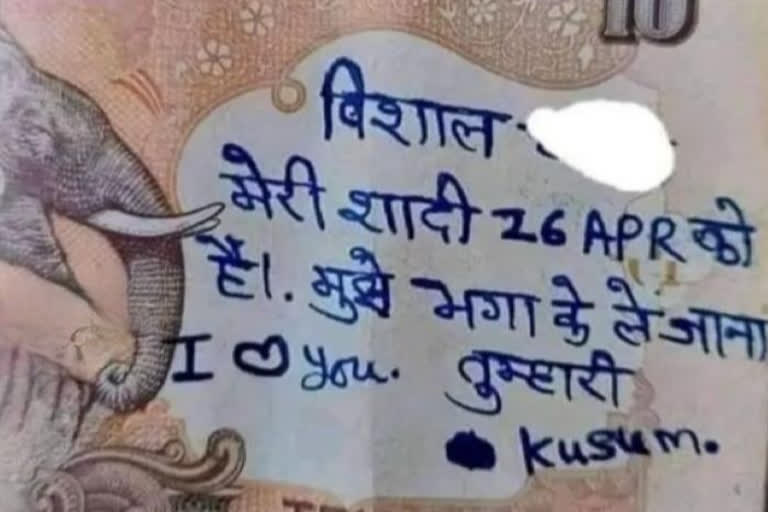 10
विशाल
मेरी शादी 26 APR को
है।. मुझे भगा के ले जाना
I ♡ you. तुम्हारी
Kusum.